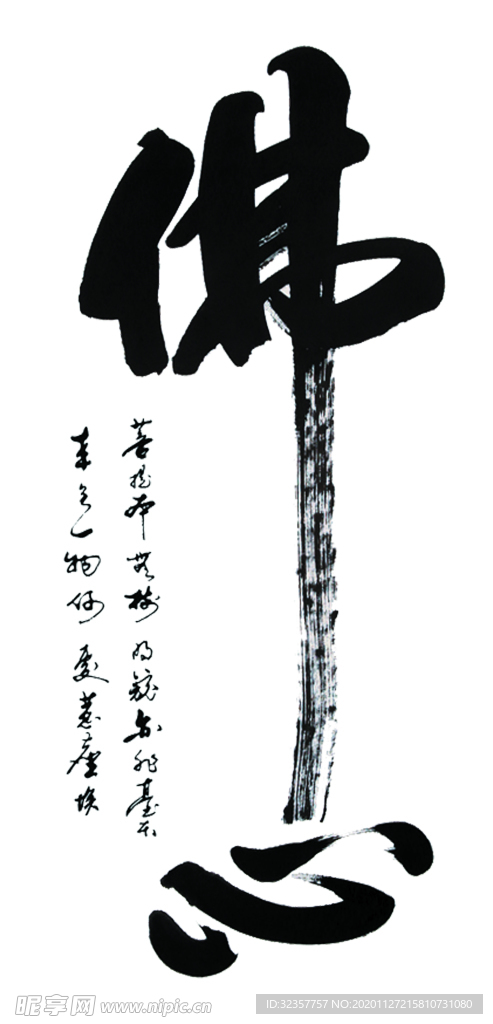 佛心
菩提本無樹明鏡亦非臺本
來無一物何處惹塵埃
昵享网 www.nipic.cn
ID:32357757 NO:20201127215810731080